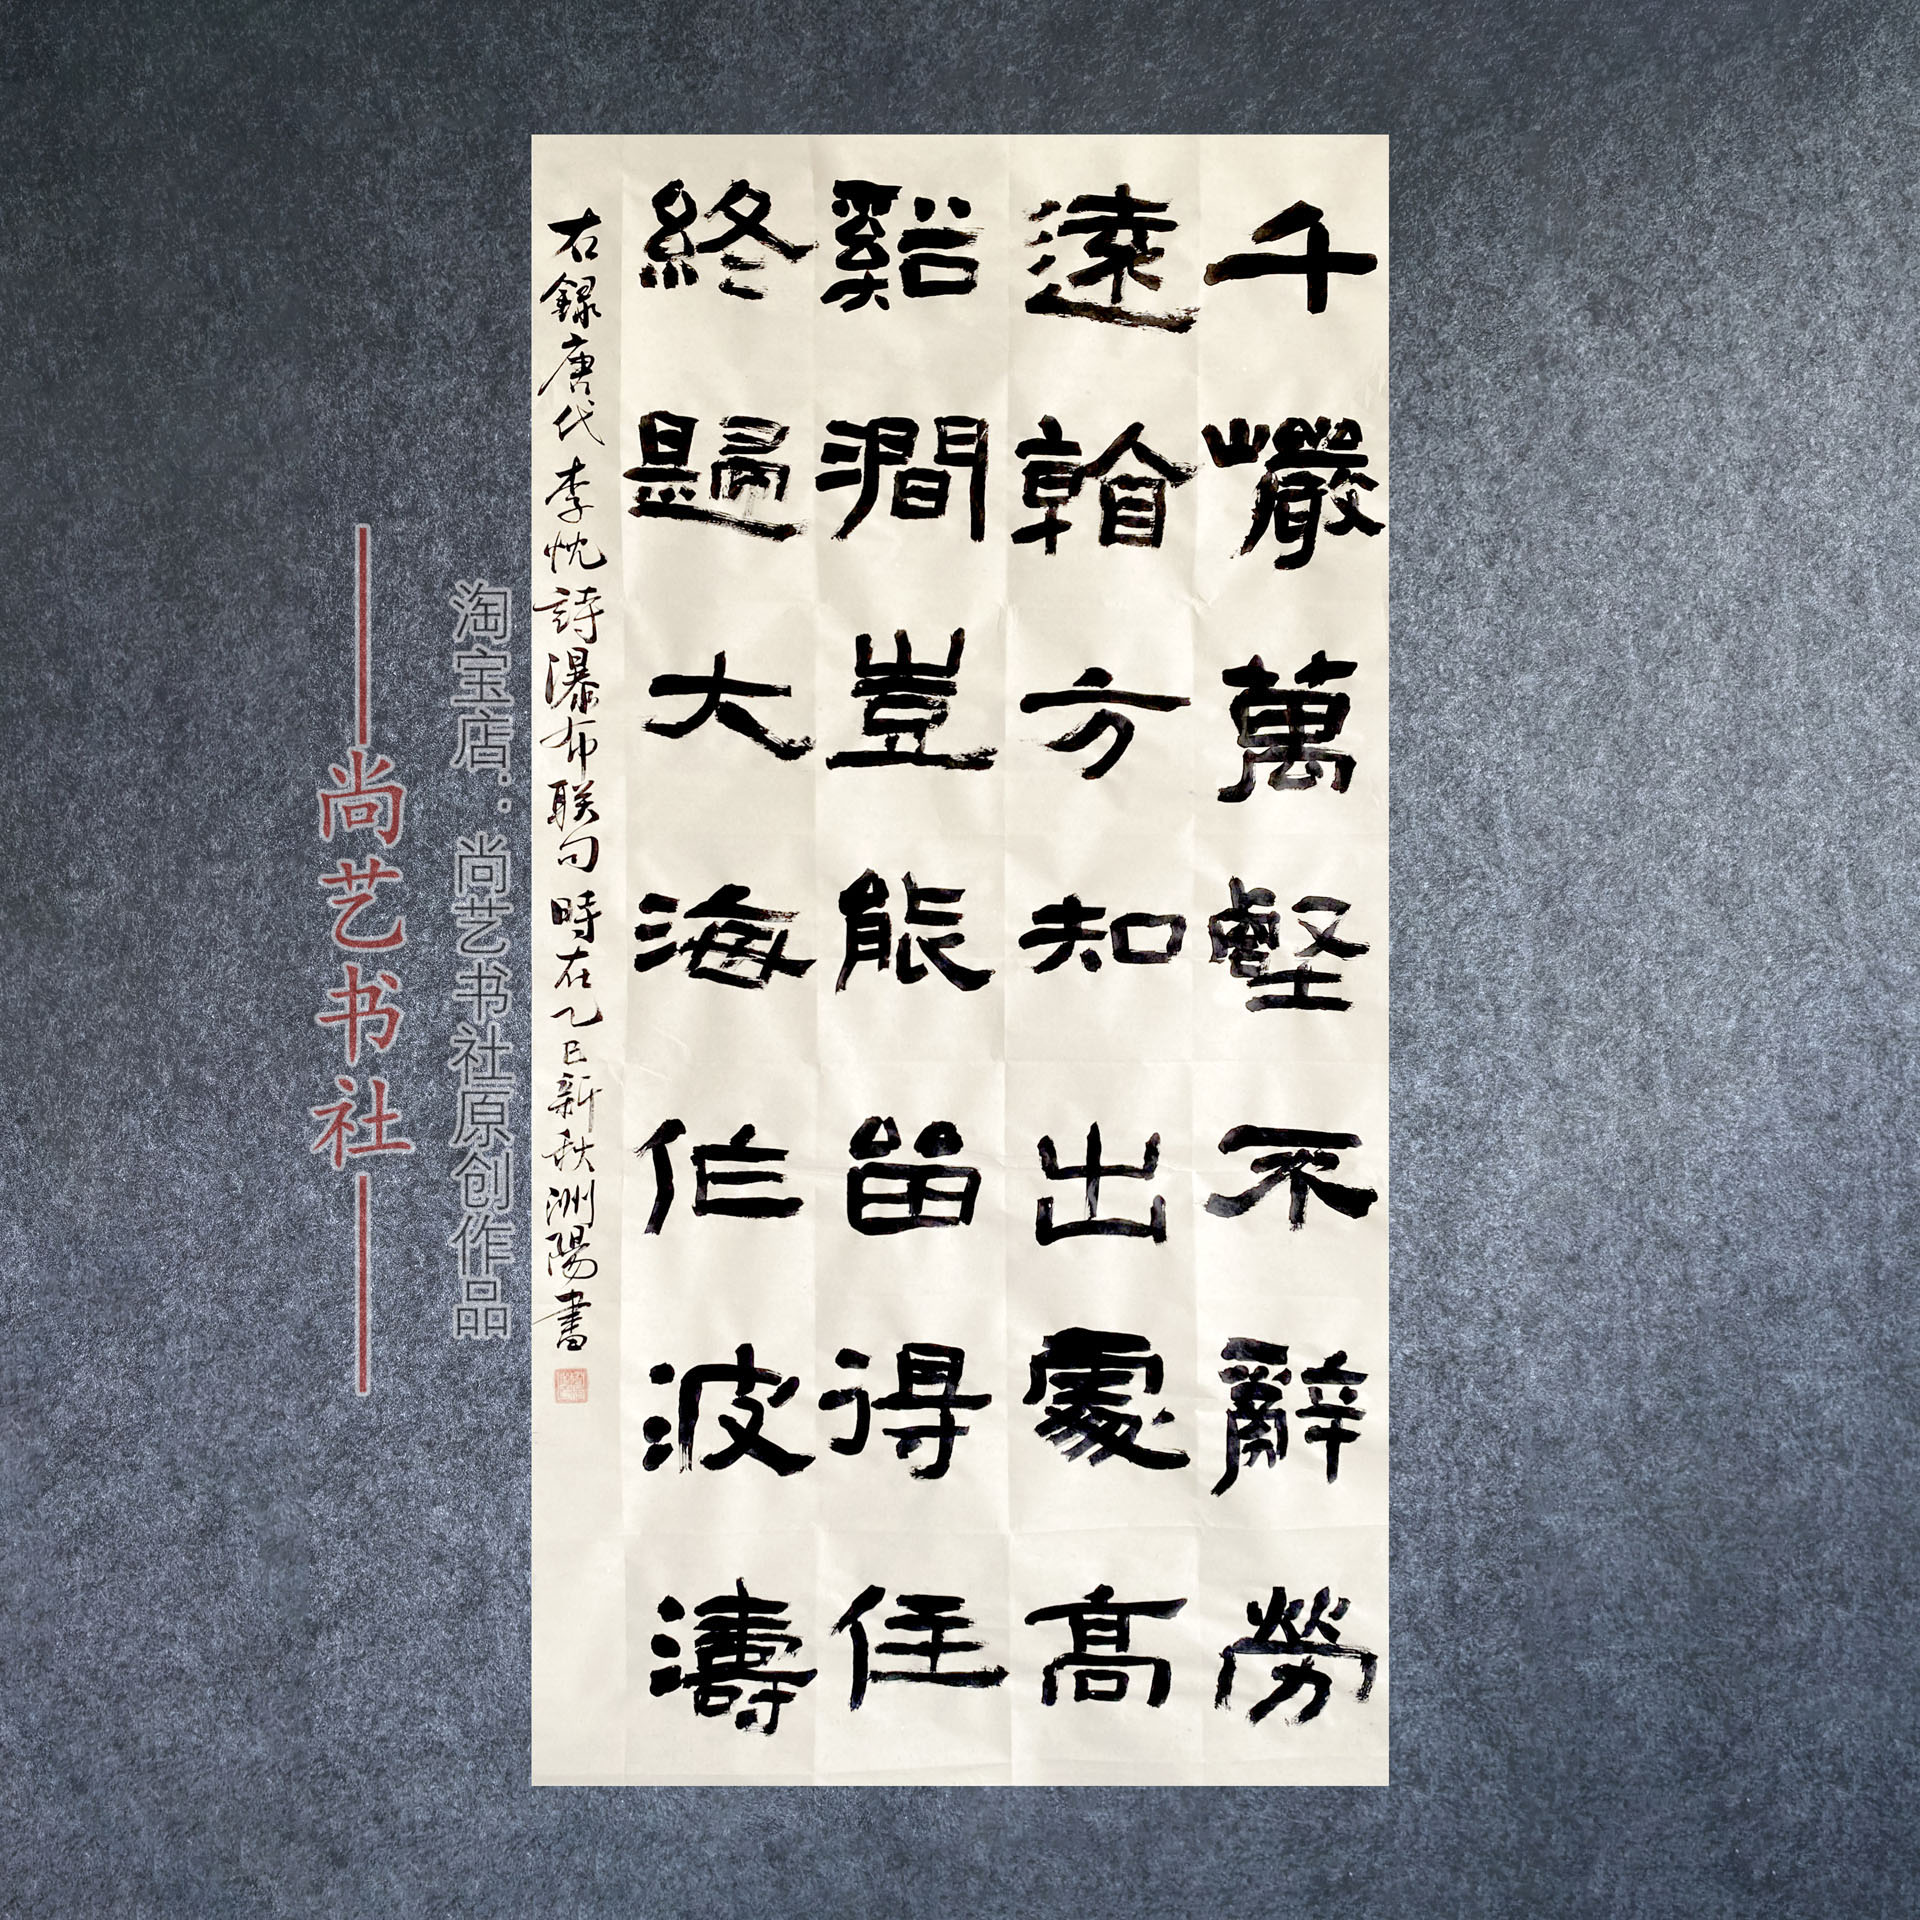 千巖萬壑不辭勞
遠看方知出處高
谿澗豈能留得住
終歸大海作波濤
右録唐代李忱詩瀑布联句時在乙巳新秋洲陽書
淘宝店：尚艺书社原创作品
尚艺书社